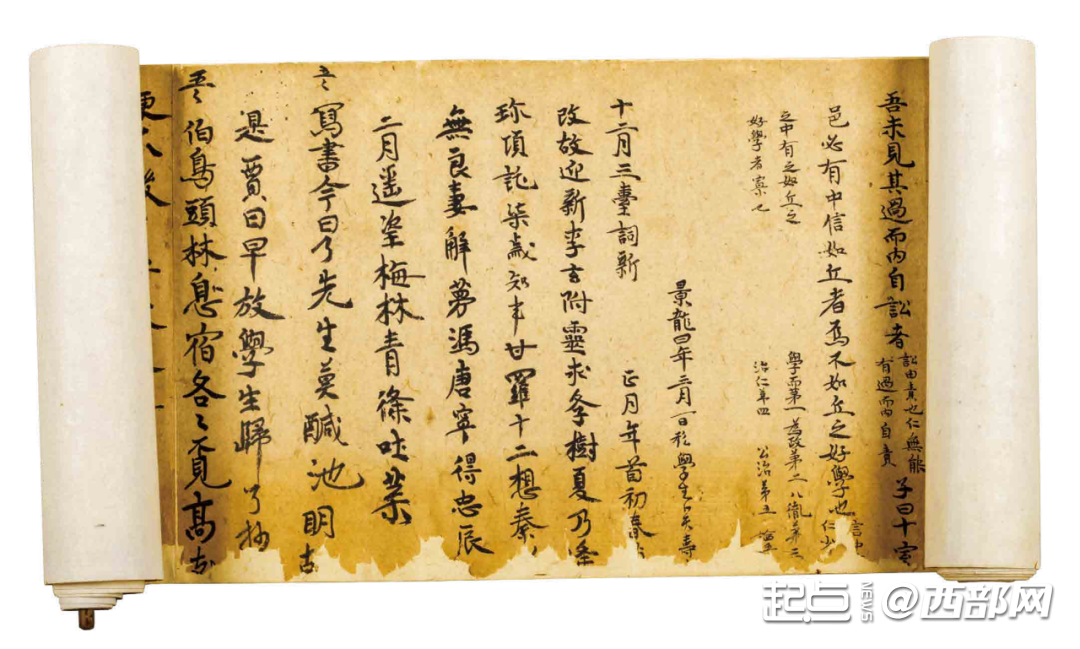 吾未見其過而内自訟者
訟由責也仁無能
有過而内自責
子曰十室
邑必有中信如丘者焉不如丘之好學也
之中有之如丘之
好學者寡也
學而第一為政第二八佾第三
治仁第四 公冶第五
景龍四年三月一日私學生卜天壽
十二月三臺詞新 正月年首初春
改故迎新李玄附靈求學樹夏乃逢
珎項託柒歲知事甘羅十二想秦
無良妻解夢馮唐寧得忠辰
二月遥望梅林青條吐葉
寫書今日了先生莫醎池明
是賈日早放學生歸
伯鳥頭林息宿各々不覓高
起点NEWS @西部网